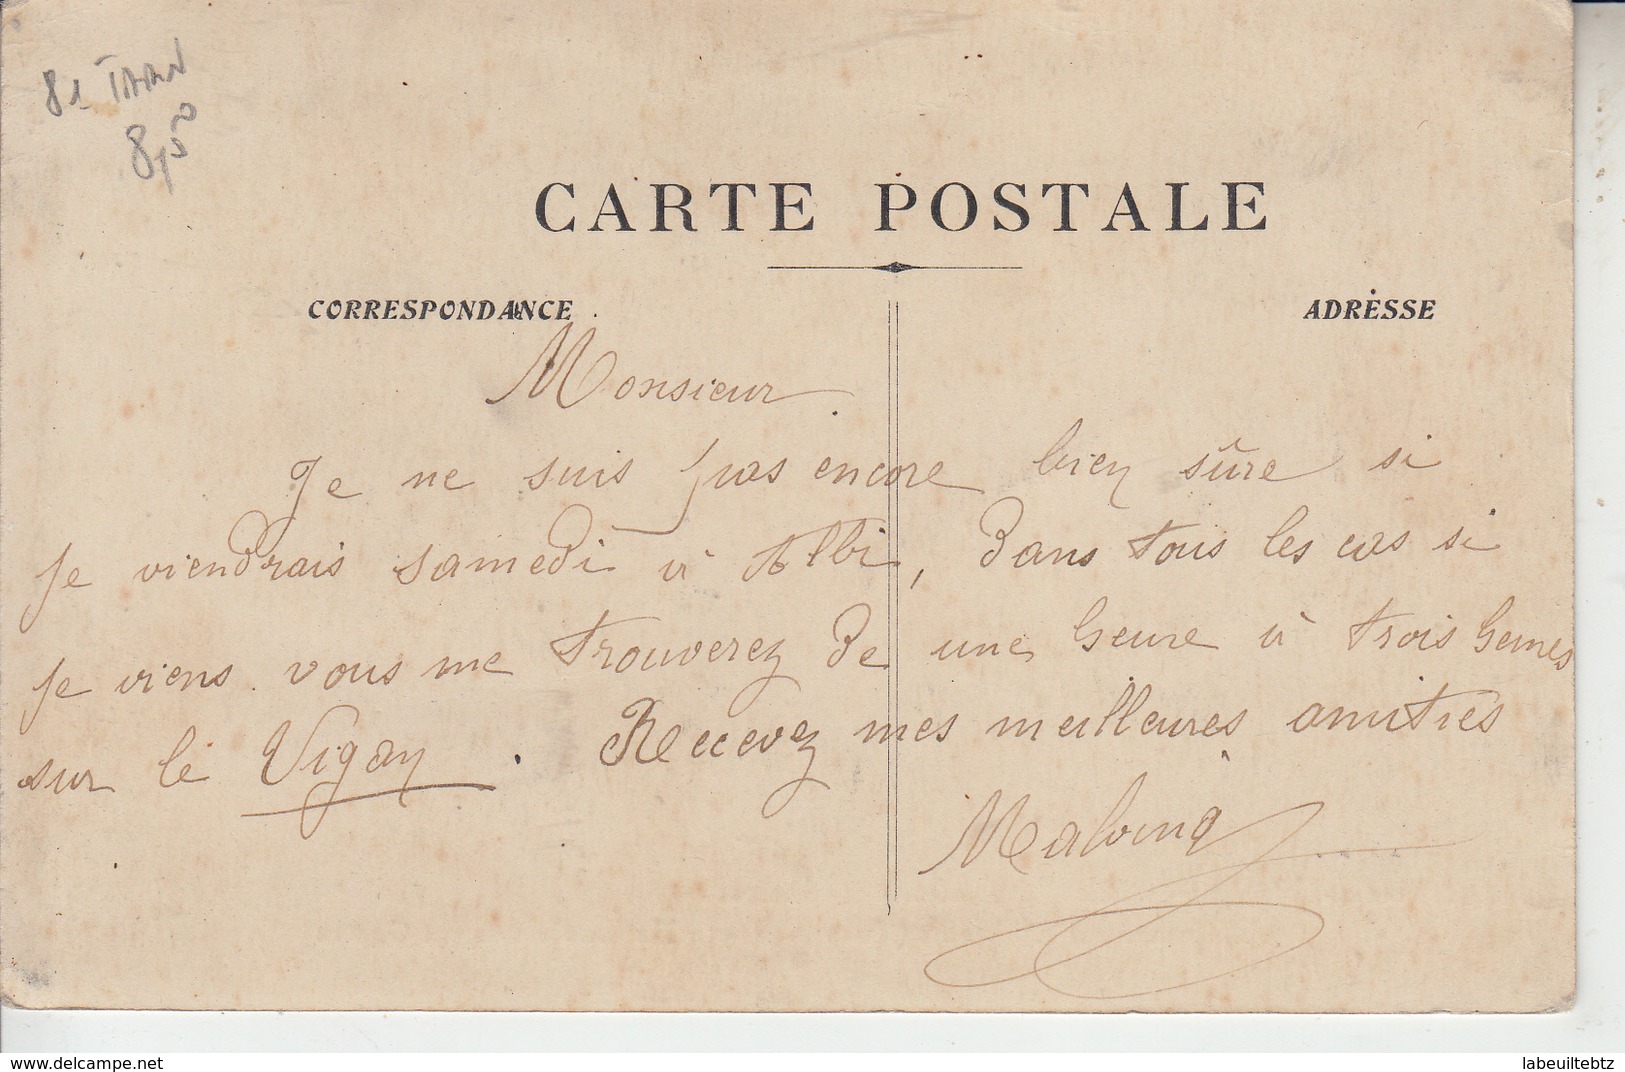 81 TARN
8,50
CARTE POSTALE
CORRESPONDANCE
ADRESSE
Monsieur
Je ne suis pas encore bien sûre si
je viendrais samedi à Albi, dans tous les cas si
je viens vous me trouverez de une heure à trois heures
sur le Vigan. Recevez mes meilleures amitiés
Malvina
www.delcampe.net
labeuiltebtz